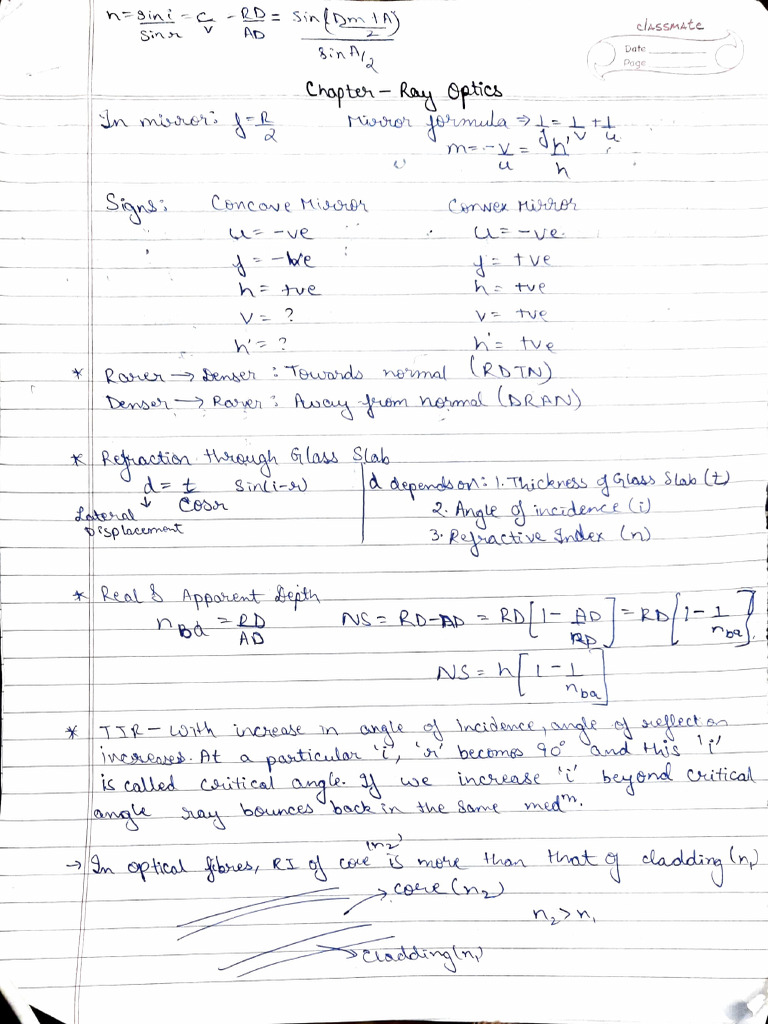 n = sin i / sin r = c / v - RD / AD = sin (Dm + A / 2) / sin A/2
classmate
Date
Page
Chapter - Ray Optics
In mirror: f = R/2 Mirror formula ⇒ 1/f = 1/v + 1/u
m = - v/u = h'/h
Signs: Concave Mirror Convex Mirror
u = -ve u = -ve
f = -ve f = +ve
h = +ve h = +ve
v = ? v = +ve
h' = ? h' = +ve
* Rarer → Denser : Towards normal (RDTN)
Denser → Rarer : Away from normal (DRAN)
* Refraction through Glass Slab
d = t / cosr sin(i-r) d depends on: 1. Thickness of Glass Slab (t)
↓ Lateral Displacement 2. Angle of incidence (i)
3. Refractive Index (n)
* Real & Apparent Depth
nba = RD/AD NS = RD-AD = RD[1 - AD/RD] = RD[1 - 1/nba]
NS = h[1 - 1/nba]
* TIR - With increase in angle of incidence, angle of reflection
increases. At a particular 'i', 'r' becomes 90° and this 'i'
is called critical angle. If we increase 'i' beyond critical
angle ray bounces back in the same medm.
→ In optical fibres, RI of core (n2) is more than that of cladding (n1)
→ core (n2)
n2 > n1
→ cladding (n1)